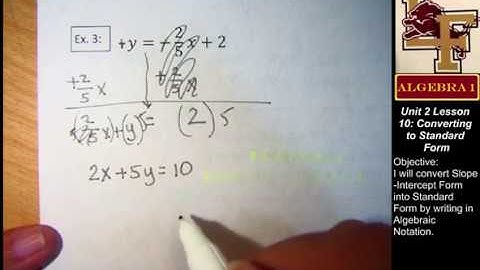 Ex. 3: +y = -2/5x + 2
+2/5 x
(2/5x)+(y)5= (2)5
2x+5y=10
LF
ALGEBRA 1
Unit 2 Lesson
10: Converting
to Standard
Form
Objective:
I will convert Slope
-Intercept Form
into Standard
Form by writing in
Algebraic
Notation.